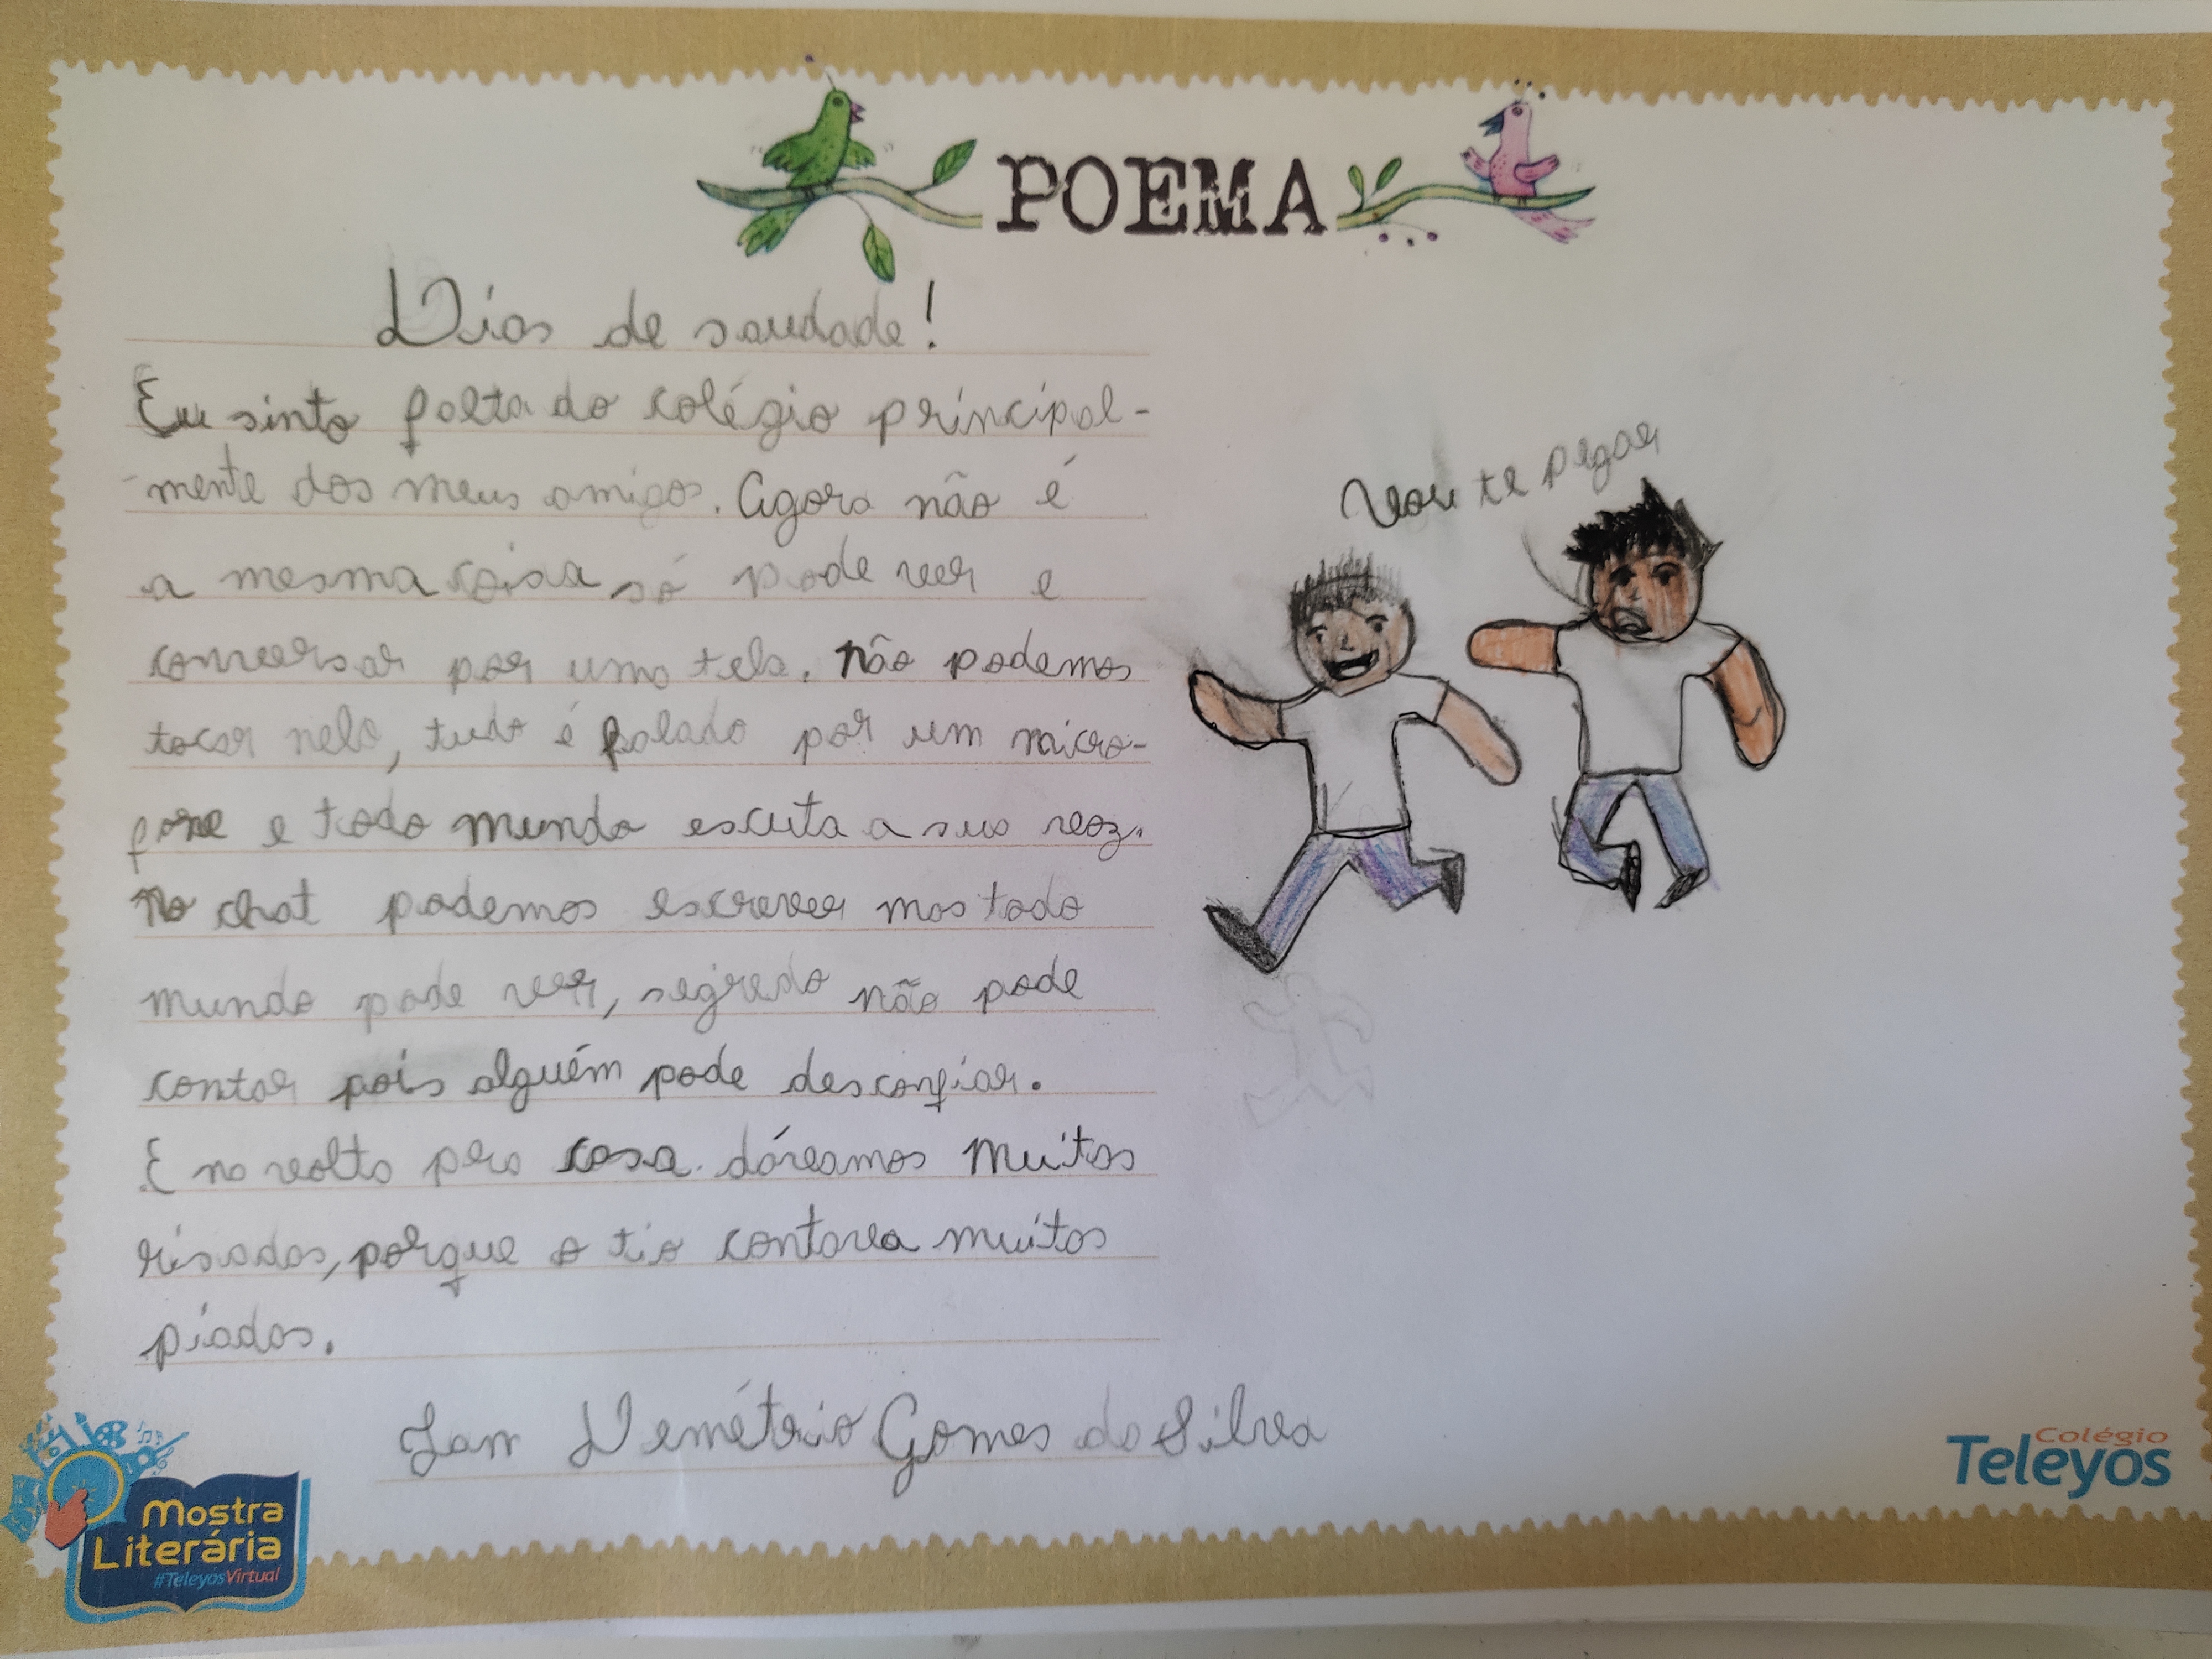 POEMA
Dias de saudade!
Eu sinto falta do colégio principal-
-mente dos meus amigos. Agora não é
a mesma coisa só pode ver e
conversar por uma tela. Não podemos
tocar nela, tudo é falado por um micro-
fone e todo mundo escuta a sua voz.
No chat podemos escrever mas todo
mundo pode ver, segredo não pode
contar pois alguém pode desconfiar.
E na volta pera casa. dávamos muitas
risadas, porque o tio contava muitas
piadas.
Vou te pegar
Jan Demétrio Gomes da Silva
Mostra
Literária
#TeleyosVirtual
Colégio
Teleyos